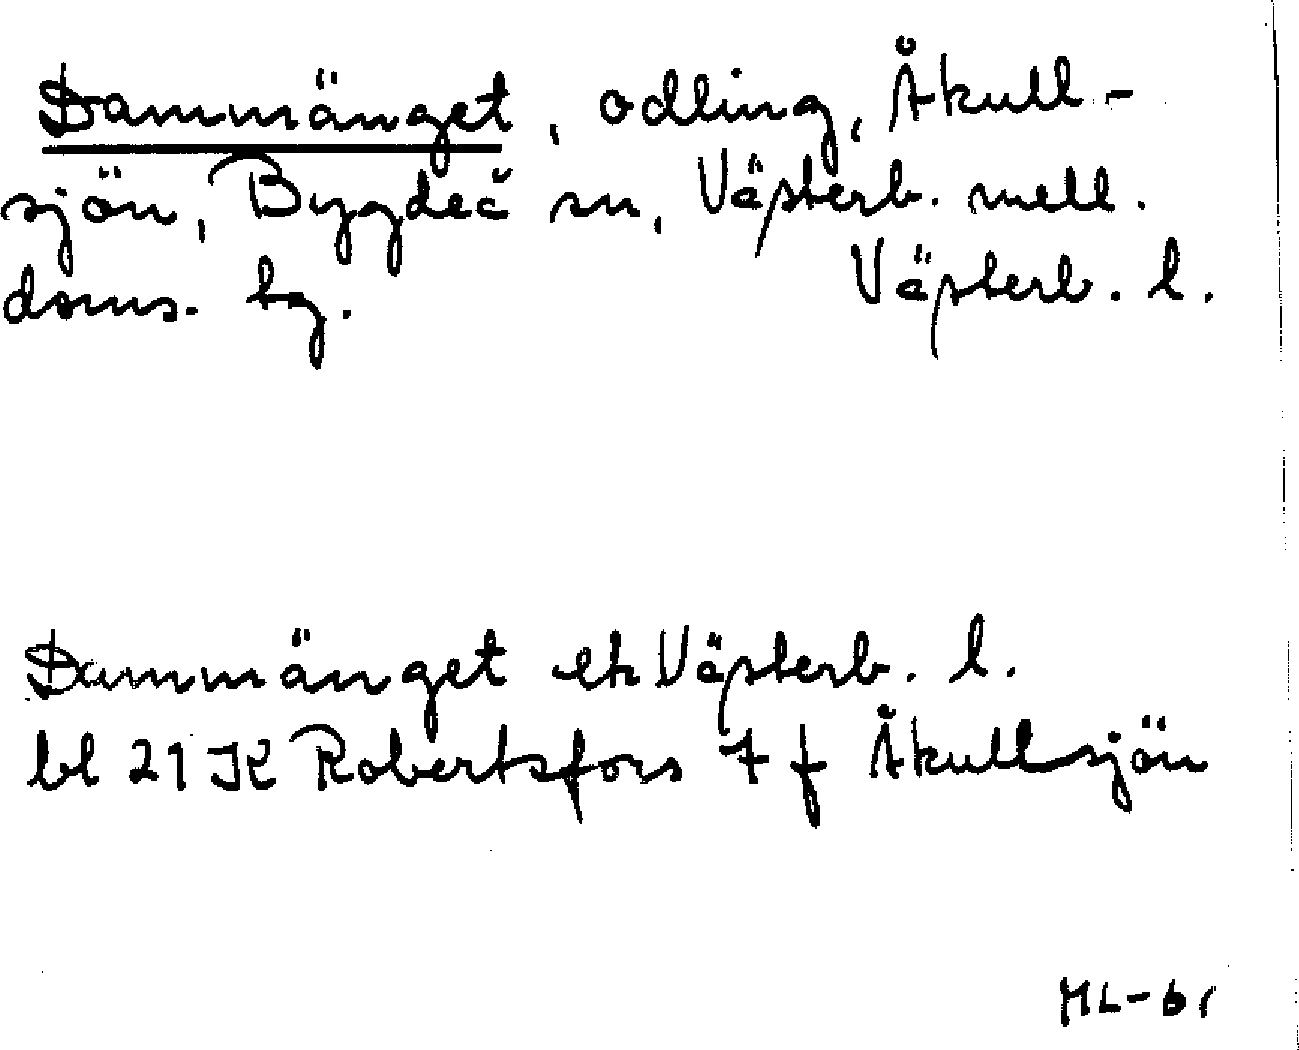 Dammänget, odling, Åkull-
sjön, Bygdeå sn, Västerb. mell.
doms. tg. Västerb. l.
Dammänget ek Västerb. l.
bl 21 JK Robertsfors 7 f Åkullsjön
ML-61